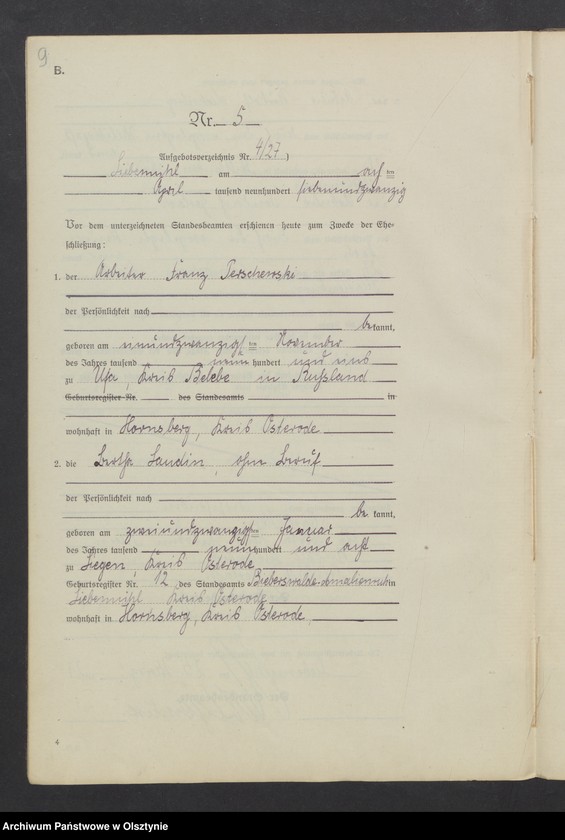 9
B.
Nr. 5
Aufgebotsverzeichnis Nr. 4/27)
Liebemühl am acht ten
April tausend neunhundert siebenundzwanzig
Vor dem unterzeichneten Standesbeamten erschienen heute zum Zwecke der Ehe-
schließung:
1. der Arbeiter Franz Perschewski
der Persönlichkeit nach
be kannt,
geboren am neunundzwanzigsten November
des Jahres tausend neun hundert und
zu Ufa, Kreis Belebe in Russland
Geburtsregister Nr. des Standesamts in
wohnhaft in Hornsberg, Kreis Osterode
2. die Bertha Sandin, ohne Beruf
der Persönlichkeit nach
be kannt,
geboren am zweiundzwanzigsten Januar
des Jahres tausend neun hundert und acht
zu Kreis Osterode
Geburtsregister Nr. 12 des Standesamts Bieberswalde in
Liebemühl Kreis Osterode
wohnhaft in Hornsberg, Kreis Osterode,
4
Archiwum Państwowe w Olsztynie